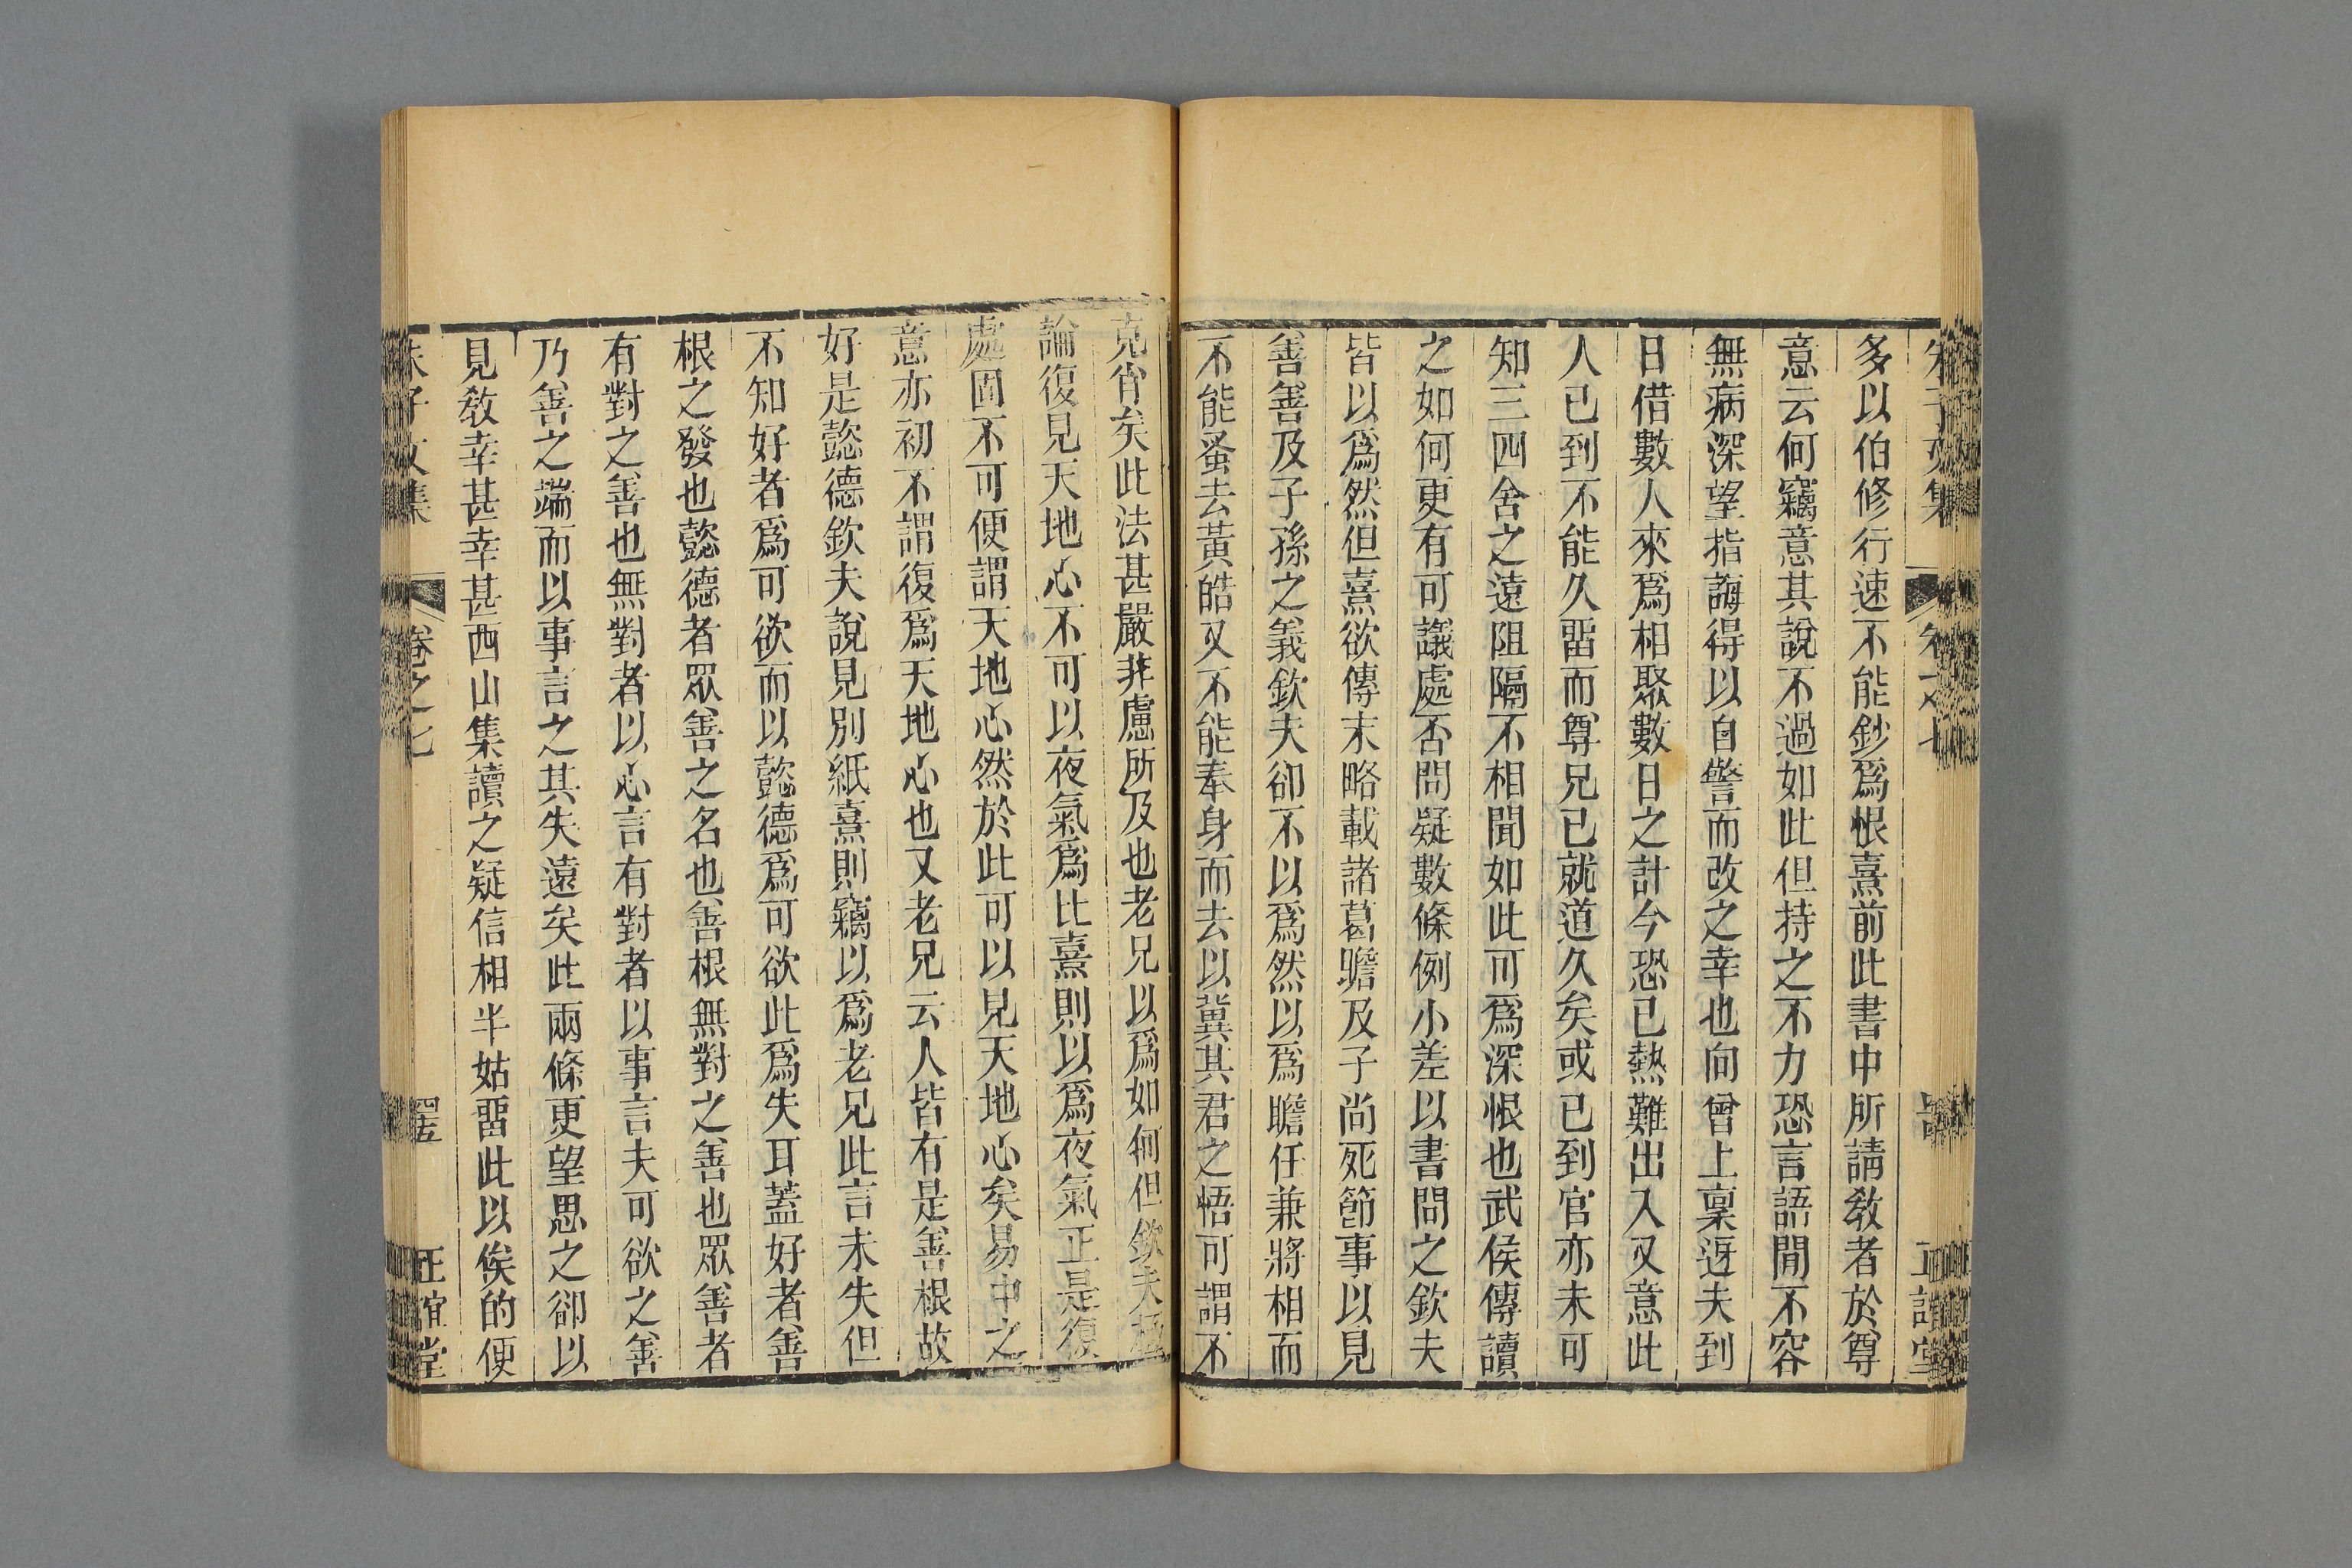 多以伯修行速不能鈔爲恨熹前此書中所請敎者於尊
意云何竊意其說不過如此但持之不力恐言語間不容
無病深望指誨得以自警而改之幸也向曾上稟迓夫到
日借數人來爲相聚數日之計今恐已熱難出入又意此
人已到不能久畱而尊兄已就道久矣或已到官亦未可
知三四舍之遠阻隔不相聞如此可爲深恨也武侯傳讀
之如何更有可議處否問疑數條例小差以書問之欽夫
皆以爲然但熹欲傳末略載諸葛瞻及子尚死節事以見
善善及子孫之義欽夫卻不以爲然以爲瞻任兼將相而
不能蚤去黃皓又不能奉身而去以冀其君之悟可謂不
克肖矣此法甚嚴非慮所及也老兄以爲如何但欽夫極
論復見天地心不可以夜氣爲比熹則以爲夜氣正是復
處固不可便謂天地心然於此可以見天地心矣易中之
意亦初不謂復爲天地心也又老兄云人皆有是善根故
好是懿德欽夫說見別紙熹則竊以爲老兄此言未失但
不知好者爲可欲而以懿德爲可欲此爲失耳蓋好者善
根之發也懿德者眾善之名也善根無對之善也眾善者
有對之善也無對者以心言有對者以事言夫可欲之善
乃善之端而以事言之其失遠矣此兩條更望思之卻以
見敎幸甚幸甚西山集讀之疑信相半姑畱此以俟的便
朱子文集 卷之七 四五 正誼堂